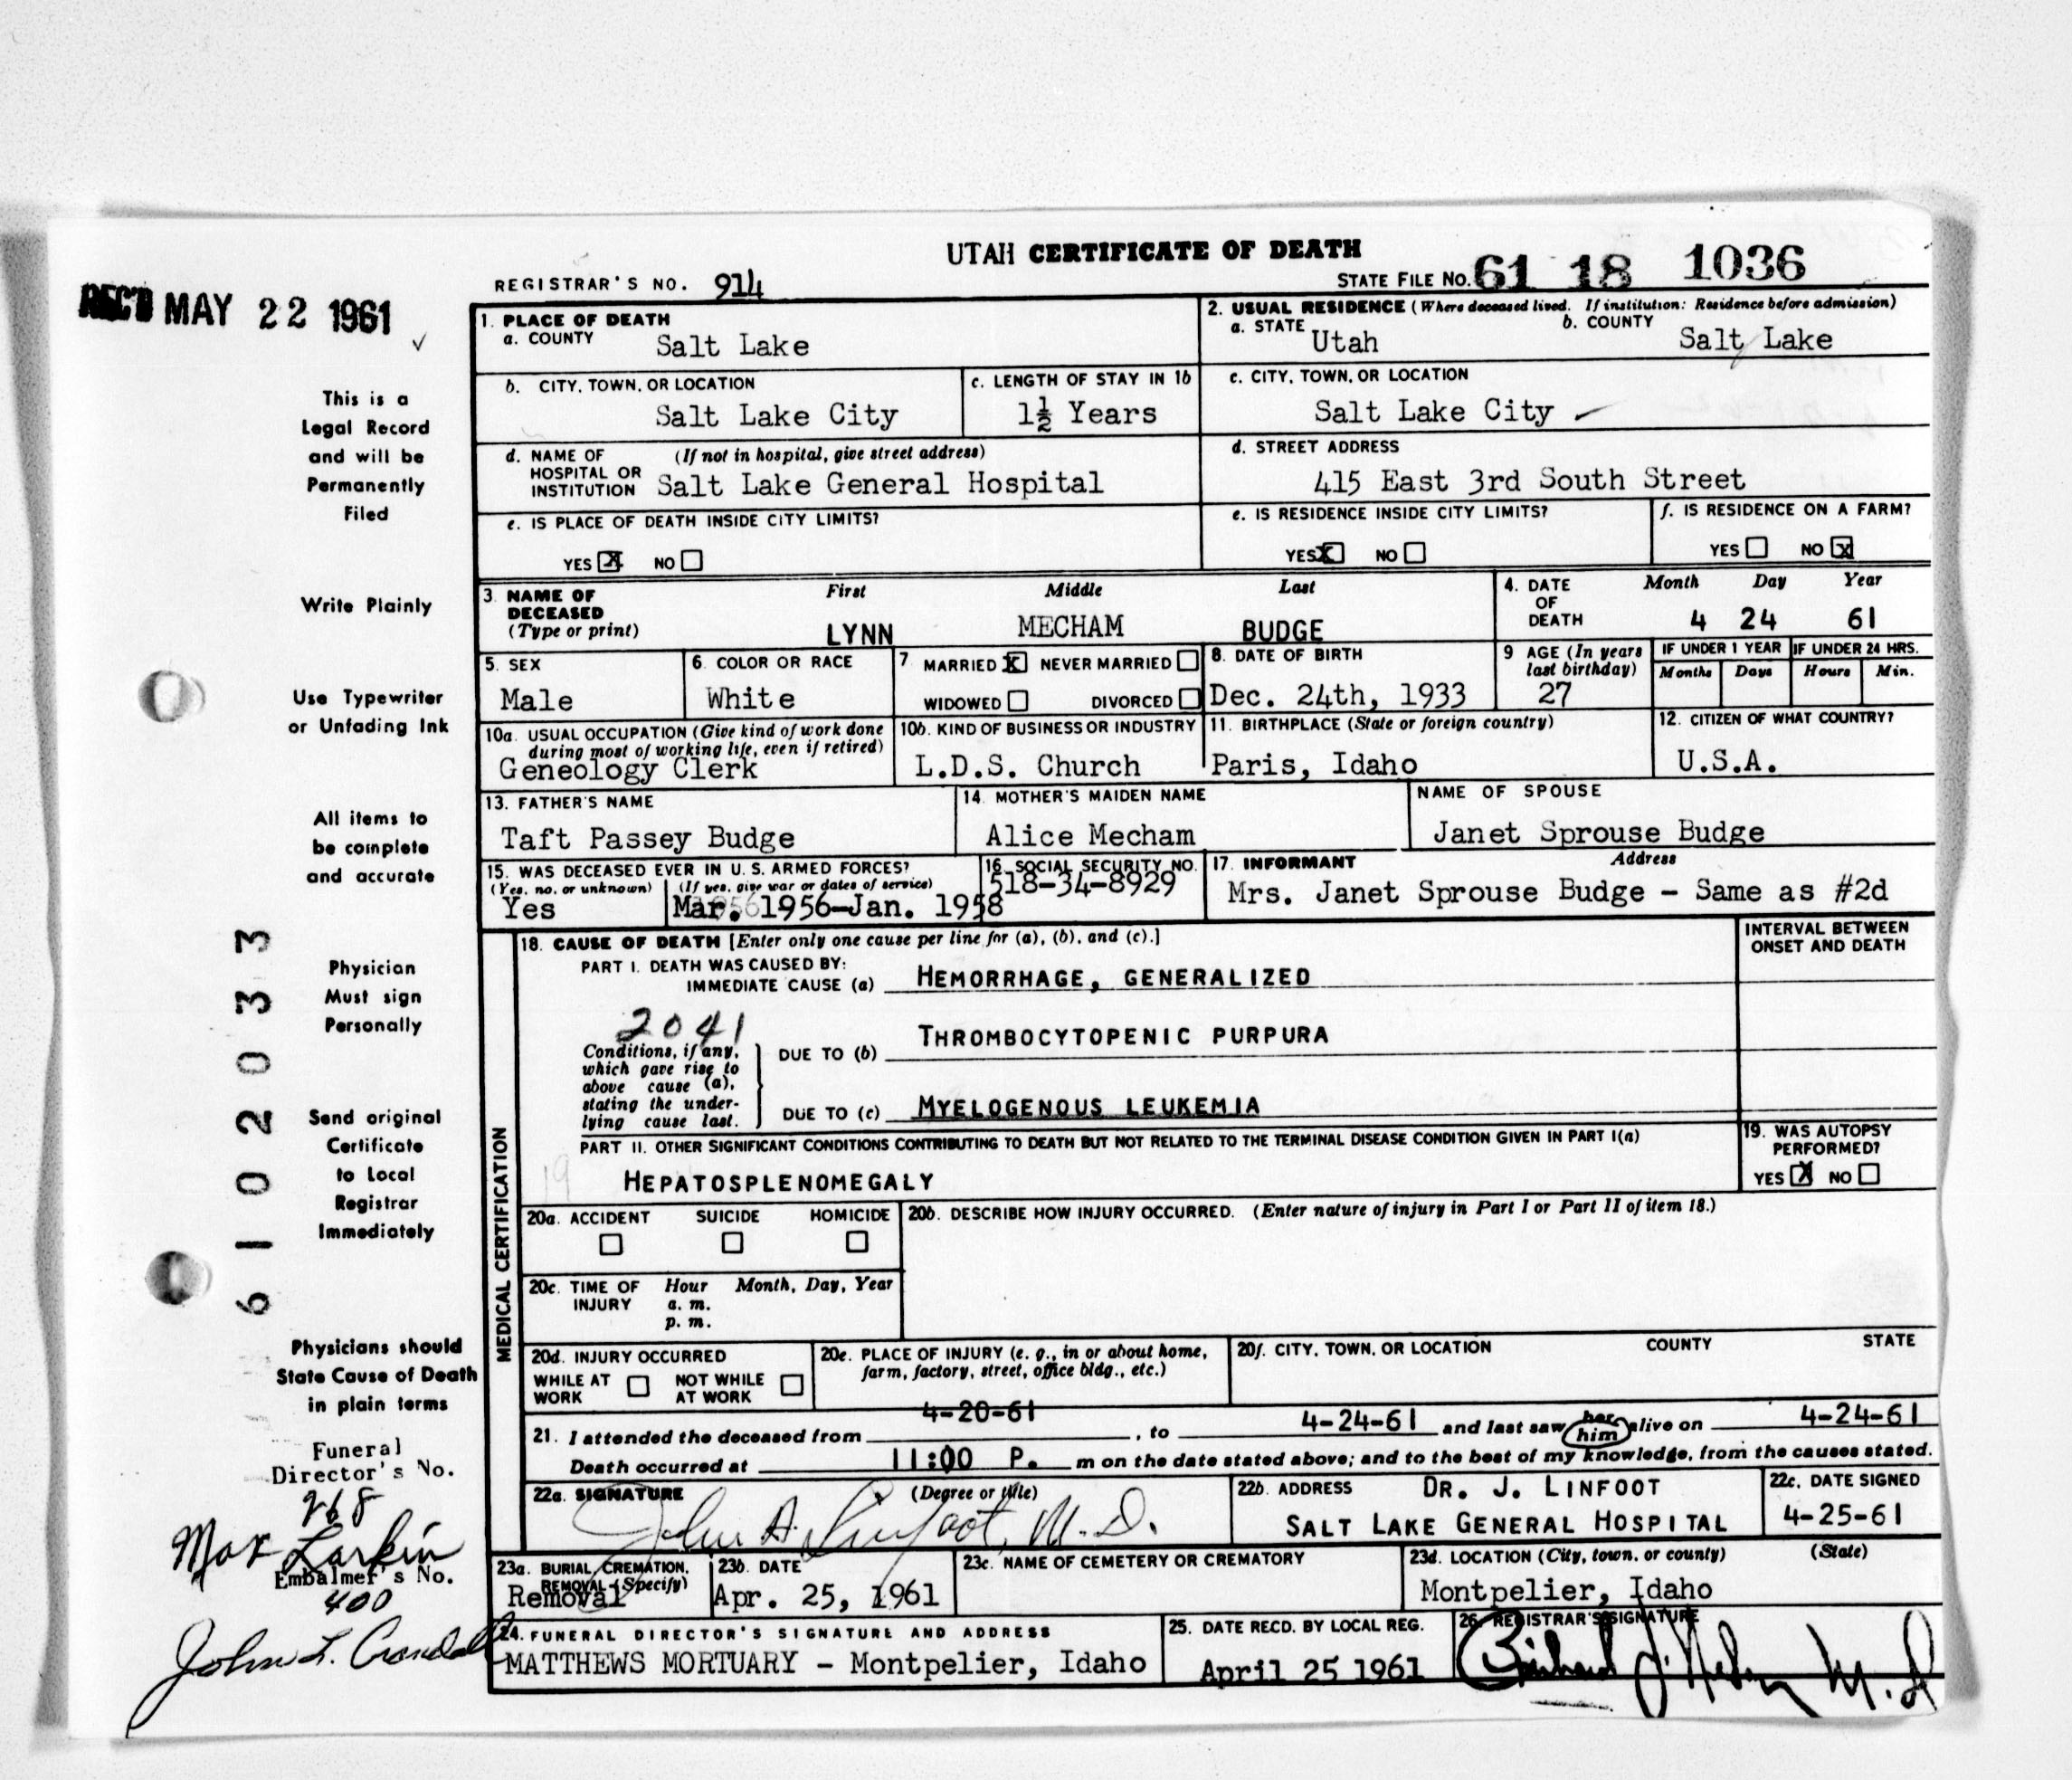 UTAH CERTIFICATE OF DEATH
REGISTRAR'S NO. 914
STATE FILE NO. 61 18 1036
REC'D MAY 22 1961
This is a
Legal Record
and will be
Permanently
Filed
Write Plainly
Use Typewriter
or Unfading Ink
All items to
be complete
and accurate
Physician
Must sign
Personally
Send original
Certificate
to Local
Registrar
Immediately
Physicians should
State Cause of Death
in plain terms
Funeral
Director's No.
268
Max Larkin
Embalmer's No.
400
John L. Crandall
6102033
1. PLACE OF DEATH
a. COUNTY Salt Lake
2. USUAL RESIDENCE (Where deceased lived. If institution: Residence before admission)
a. STATE Utah b. COUNTY Salt Lake
b. CITY, TOWN, OR LOCATION Salt Lake City
c. LENGTH OF STAY IN 1b 1½ Years
c. CITY, TOWN, OR LOCATION Salt Lake City
d. NAME OF HOSPITAL OR INSTITUTION (If not in hospital, give street address) Salt Lake General Hospital
d. STREET ADDRESS 415 East 3rd South Street
e. IS PLACE OF DEATH INSIDE CITY LIMITS?
YES X NO
e. IS RESIDENCE INSIDE CITY LIMITS?
YES X NO
f. IS RESIDENCE ON A FARM?
YES NO X
3. NAME OF DECEASED (Type or print)
First Middle Last
LYNN MECHAM BUDGE
4. DATE OF DEATH
Month Day Year
4 24 61
5. SEX Male
6. COLOR OR RACE White
7. MARRIED X NEVER MARRIED
WIDOWED DIVORCED
8. DATE OF BIRTH Dec. 24th, 1933
9. AGE (In years last birthday) 27
IF UNDER 1 YEAR Months Days
IF UNDER 24 HRS. Hours Min.
10a. USUAL OCCUPATION (Give kind of work done during most of working life, even if retired)
Geneology Clerk
10b. KIND OF BUSINESS OR INDUSTRY L.D.S. Church
11. BIRTHPLACE (State or foreign country) Paris, Idaho
12. CITIZEN OF WHAT COUNTRY? U.S.A.
13. FATHER'S NAME Taft Passey Budge
14. MOTHER'S MAIDEN NAME Alice Mecham
NAME OF SPOUSE Janet Sprouse Budge
15. WAS DECEASED EVER IN U.S. ARMED FORCES?
(Yes, no, or unknown) (If yes, give war or dates of service)
Yes Mar. 1956-Jan. 1958
16. SOCIAL SECURITY NO. 518-34-8929
17. INFORMANT Address
Mrs. Janet Sprouse Budge - Same as #2d
MEDICAL CERTIFICATION
18. CAUSE OF DEATH [Enter only one cause per line for (a), (b), and (c).]
INTERVAL BETWEEN ONSET AND DEATH
PART I. DEATH WAS CAUSED BY:
IMMEDIATE CAUSE (a) HEMORRHAGE, GENERALIZED
2041
Conditions, if any, which gave rise to above cause (a), stating the underlying cause last.
DUE TO (b) THROMBOCYTOPENIC PURPURA
DUE TO (c) MYELOGENOUS LEUKEMIA
PART II. OTHER SIGNIFICANT CONDITIONS CONTRIBUTING TO DEATH BUT NOT RELATED TO THE TERMINAL DISEASE CONDITION GIVEN IN PART I(a)
HEPATOSPLENOMEGALY
19. WAS AUTOPSY PERFORMED?
YES X NO
20a. ACCIDENT SUICIDE HOMICIDE
20b. DESCRIBE HOW INJURY OCCURRED. (Enter nature of injury in Part I or Part II of item 18.)
20c. TIME OF INJURY Hour Month, Day, Year
a. m.
p. m.
20d. INJURY OCCURRED
WHILE AT WORK NOT WHILE AT WORK
20e. PLACE OF INJURY (e. g., in or about home, farm, factory, street, office bldg., etc.)
20f. CITY, TOWN, OR LOCATION COUNTY STATE
21. I attended the deceased from 4-20-61, to 4-24-61 and last saw her him alive on 4-24-61
Death occurred at 11:00 P. m on the date stated above; and to the best of my knowledge, from the causes stated.
22a. SIGNATURE (Degree or title)
John A. Linfoot, M.D.
22b. ADDRESS DR. J. LINFOOT
SALT LAKE GENERAL HOSPITAL
22c. DATE SIGNED
4-25-61
23a. BURIAL, CREMATION, REMOVAL (Specify)
Removal
23b. DATE Apr. 25, 1961
23c. NAME OF CEMETERY OR CREMATORY
23d. LOCATION (City, town, or county) (State)
Montpelier, Idaho
24. FUNERAL DIRECTOR'S SIGNATURE AND ADDRESS
MATTHEWS MORTUARY - Montpelier, Idaho
25. DATE RECD. BY LOCAL REG.
April 25 1961
26. REGISTRAR'S SIGNATURE
M.D.